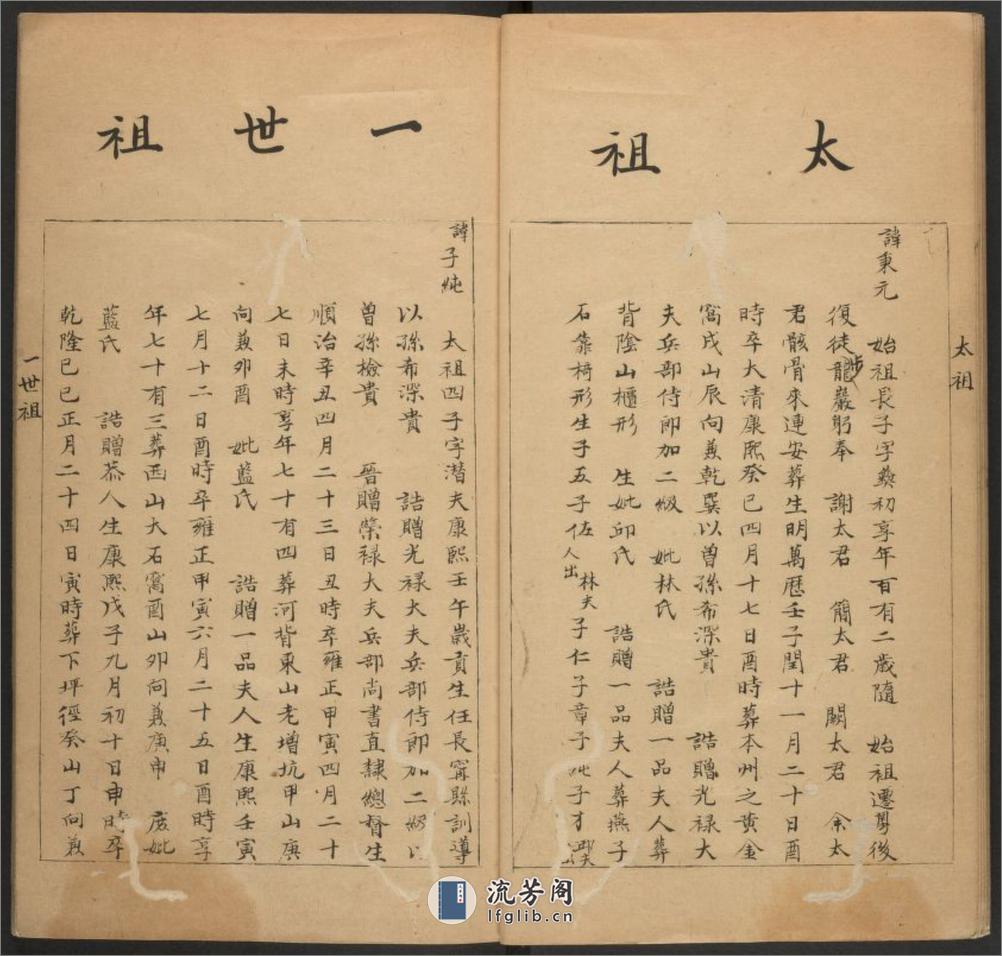 太祖
太祖
諱東元
始祖長子字燊初享年百有二歲隨 始祖遷粵後
復徒步龍巖躬奉 謝太君 簡太君 闕太君 余太
君骸骨來連安葬生明萬歷壬子閏十一月二十日酉
時卒大清康熙癸巳四月十七日酉時葬本州之黄金
窩戌山辰向兼乾巽以曾孫希深貴 誥贈光禄大
夫兵部侍郎加二級 妣林氏 誥贈一品夫人葬
背陰山櫃形 生妣邱氏 誥贈一品夫人葬燕子
石靠椅形生子五子佐林夫人出子仁子章子純子才
一世祖
諱子純
太祖四子字潜夫康熙壬午歲貢生任長寗縣訓導
以孫希深貴 誥贈光禄大夫兵部侍郎加二級以
曾孫檢貴 晉贈榮禄大夫兵部尚書直隸總督生
順治辛丑四月二十三日丑時卒雍正甲寅四月二十
七日未時享年七十有四葬河背東山老增坑甲山庚
向兼夘酉 妣藍氏 誥贈一品夫人生康熙壬寅
七月十二日酉時卒雍正甲寅六月二十五日酉時享
年七十有三葬西山大石窩酉山夘向兼庚申 庶妣
藍氏 誥贈恭人生康熙戊子九月初十日申時卒
乾隆己巳正月二十四日寅時葬下坪徑癸山丁向兼
一世祖
流芳阁
lfglib.cn